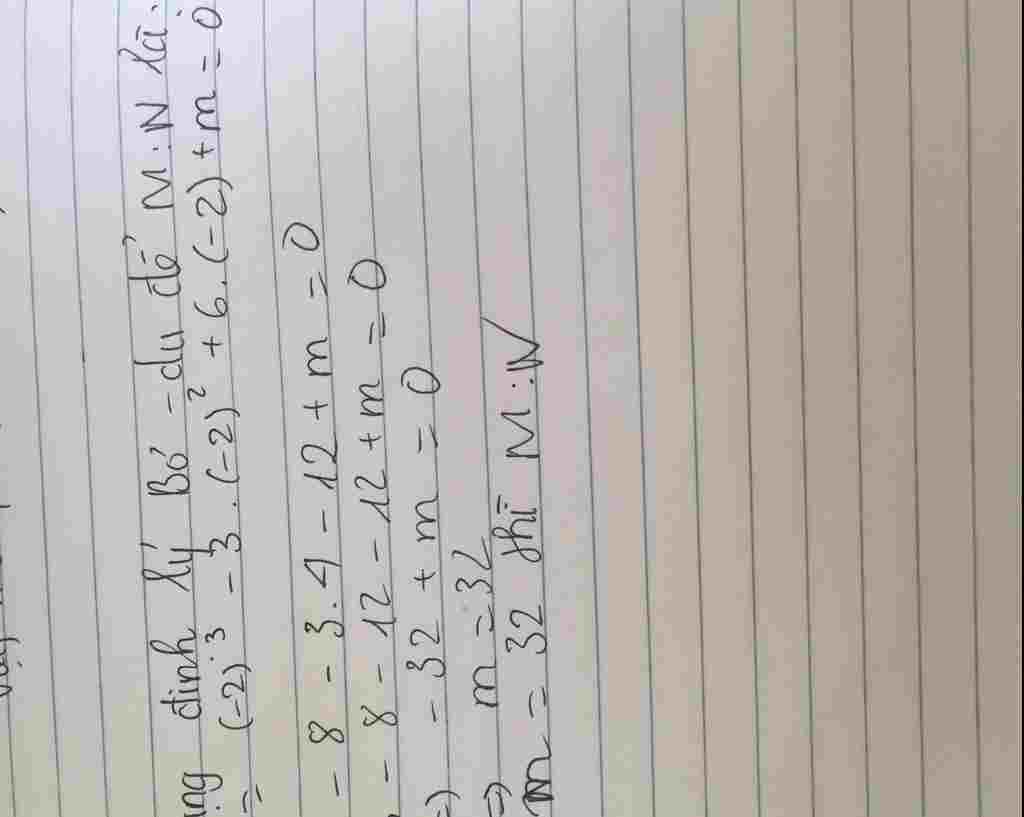 ụng định lý Bơ-du để M:N là:
= (-2)³ - 3.(-2)² + 6.(-2) + m = 0
- 8 - 3.4 - 12 + m = 0
- 8 - 12 - 12 + m = 0
=) - 32 + m = 0
=> m = 32
m = 32 thì M:N